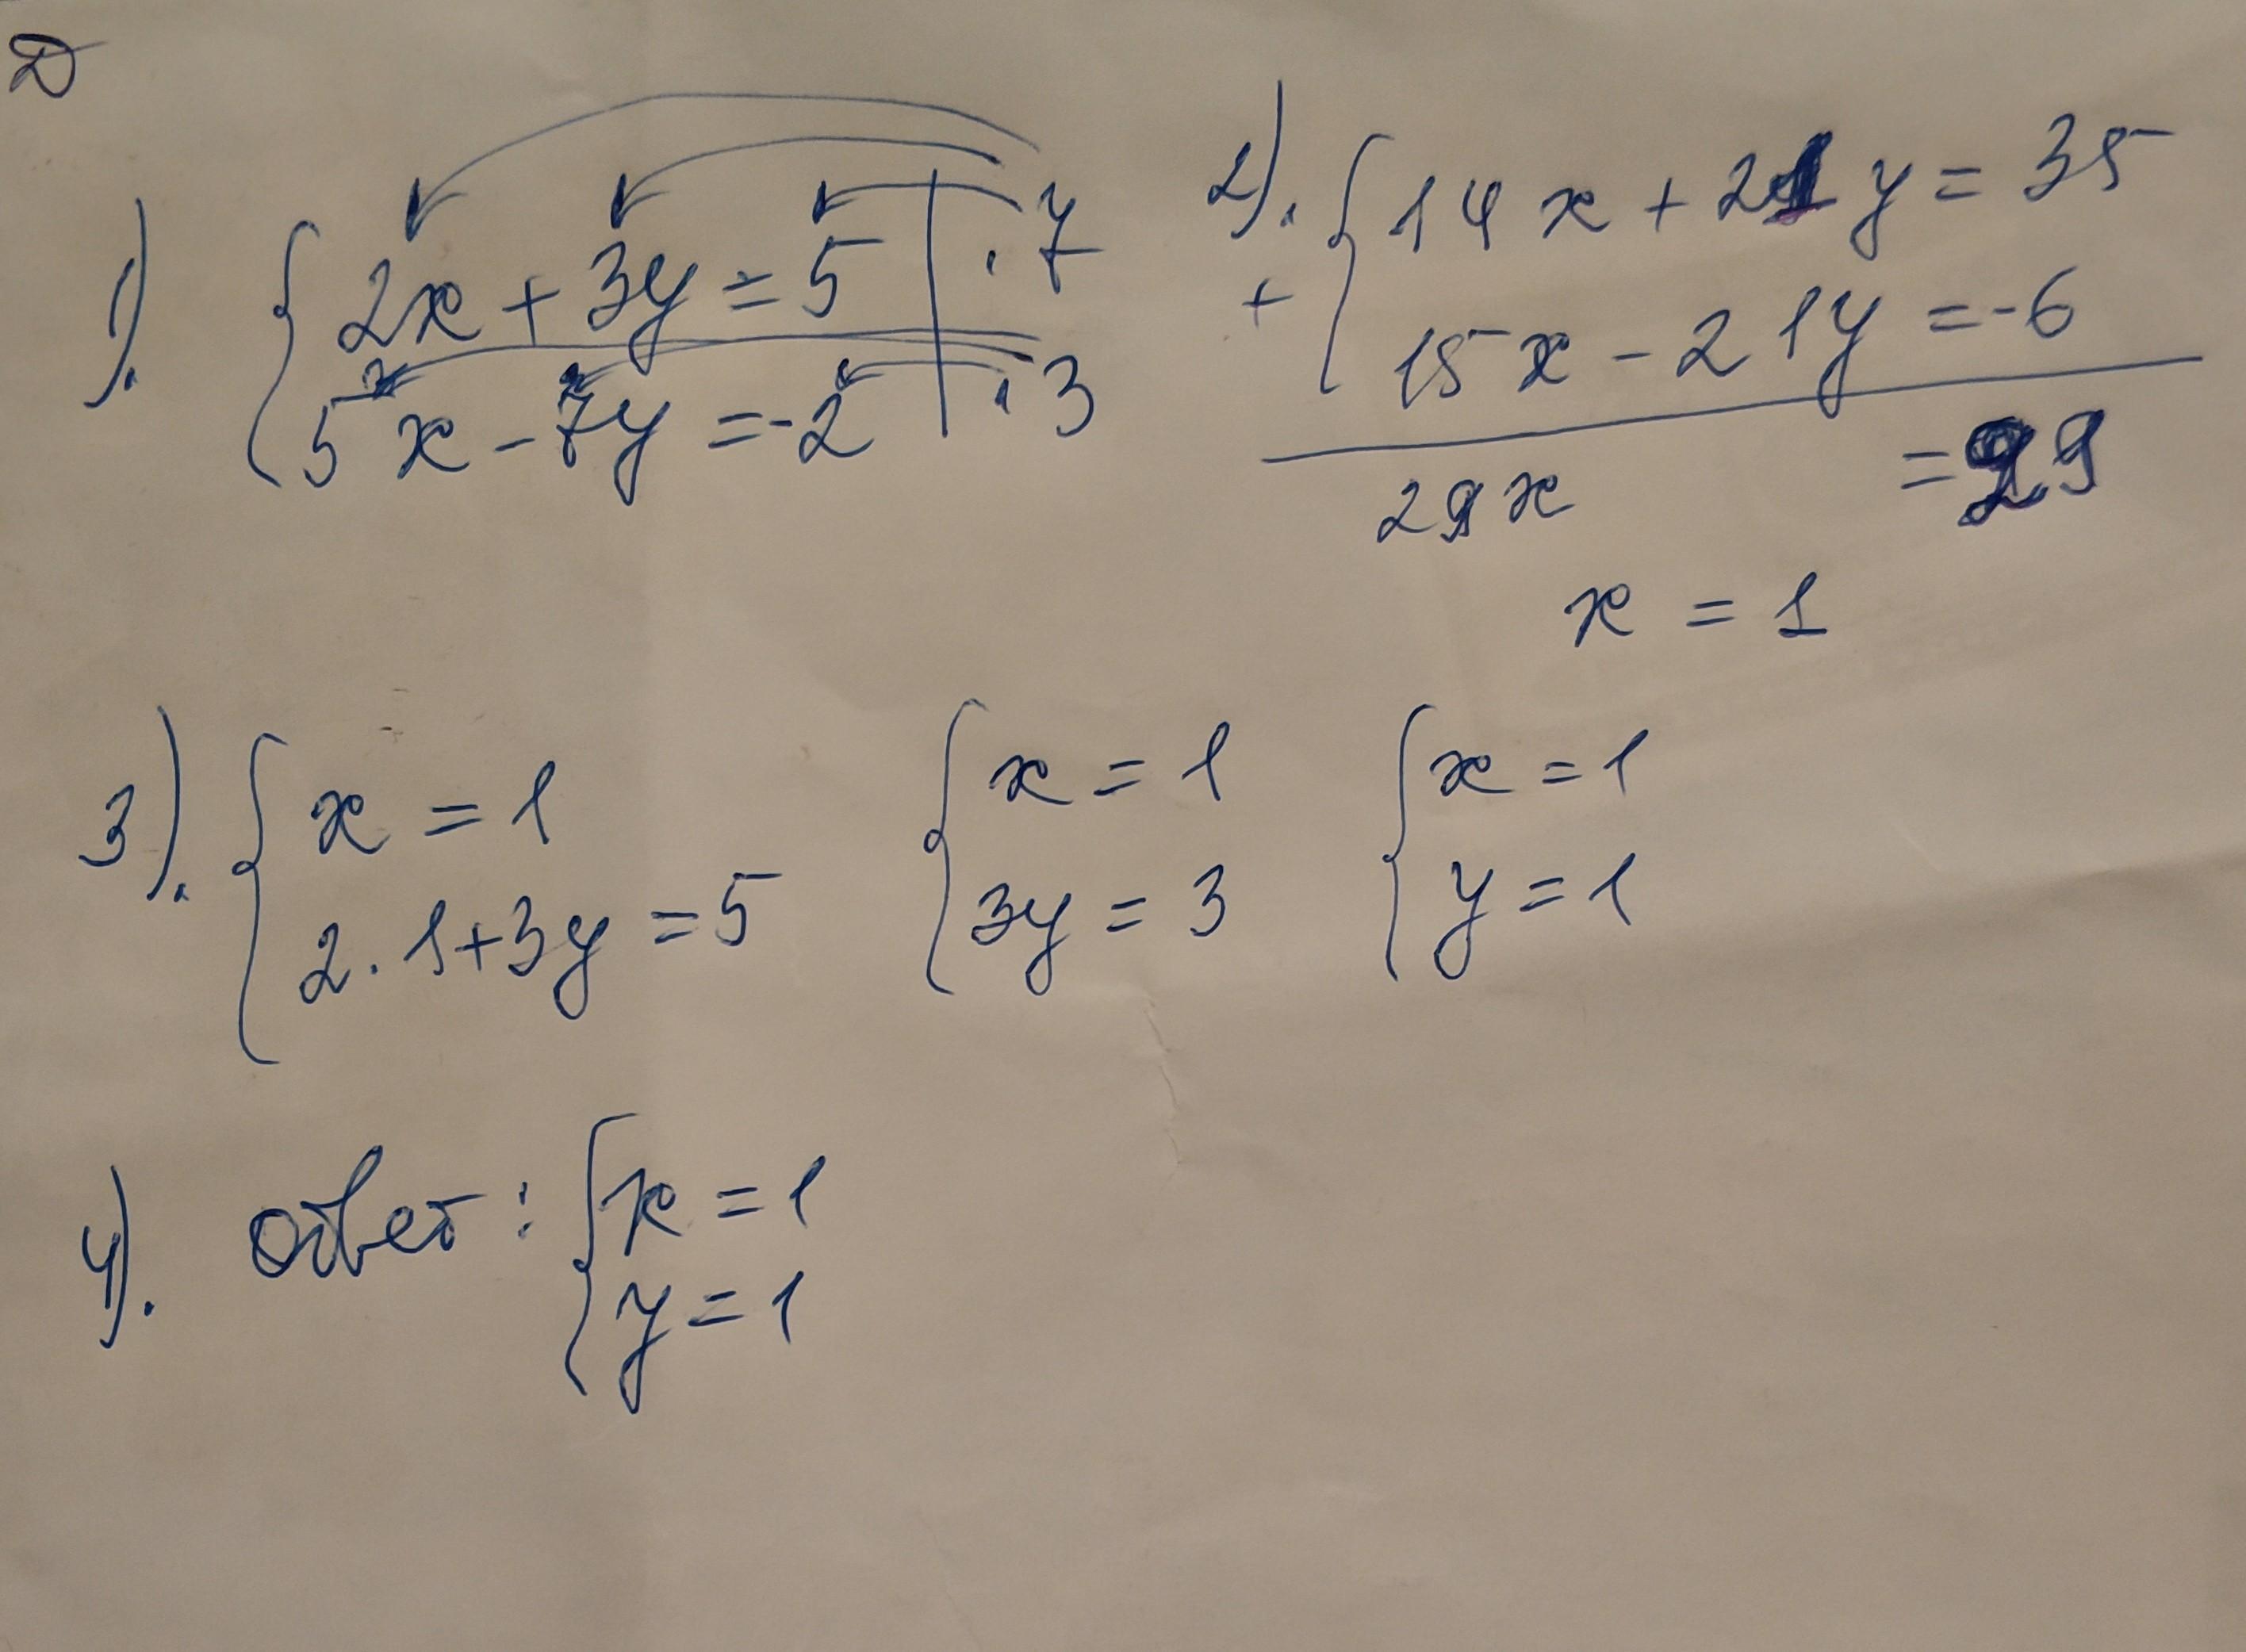 D
1). { 2x + 3y = 5 | · 7
5x - 7y = -2 | · 3
2). + { 14x + 21y = 35
15x - 21y = -6
29x = 29
x = 1
3). { x = 1
2 · 1 + 3y = 5
{ x = 1
3y = 3
{ x = 1
y = 1
4). ответ: { x = 1
y = 1